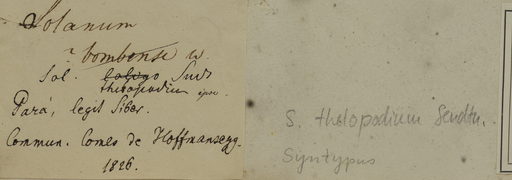 Solanum
? bombense W.
Sol. Sendt
thelopodium ipse.
Pará, legit Siber.
Commun. Comes de Hoffmansegg.
1826.
S. thelopodium Sendtn.
Syntypus